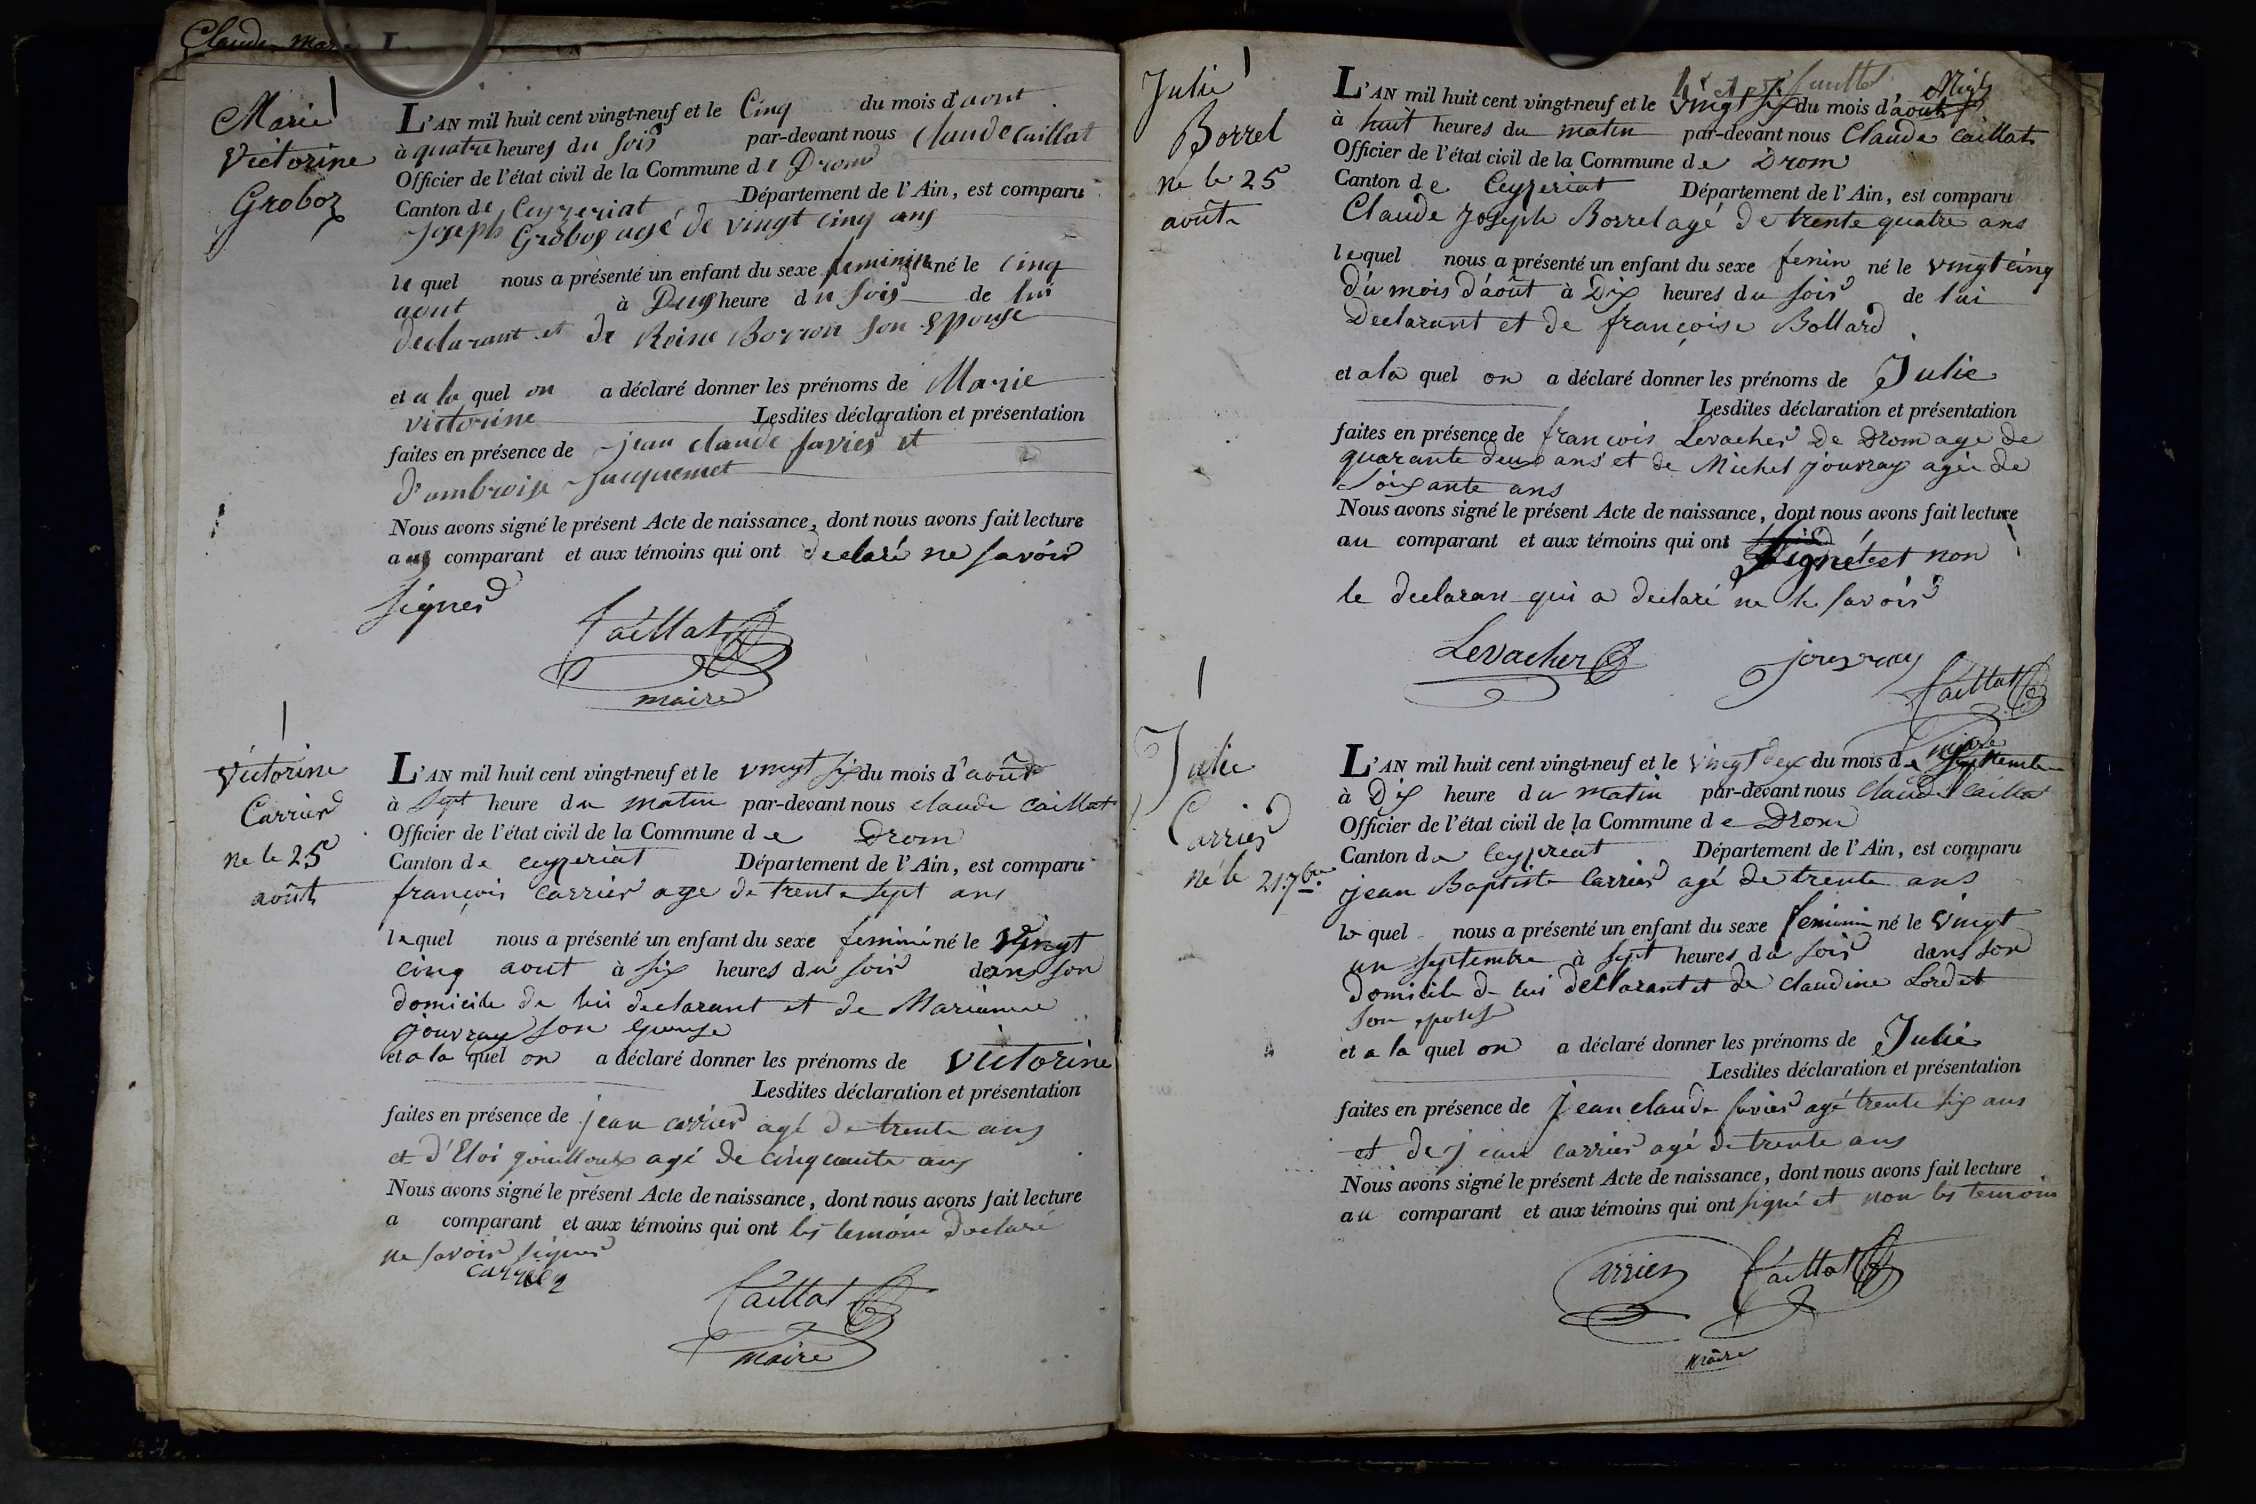 Claude Mar
Marie
Victorine
Groboz
L'AN mil huit cent vingt-neuf et le Cinq du mois d'aout
à quatre heures du soir par-devant nous Claude Caillat
Officier de l'état civil de la Commune de Drom
Canton de Ceyzeriat Département de l'Ain, est comparu
Joseph Groboz agé de vingt cinq ans
le quel nous a présenté un enfant du sexe feminin né le cinq
aout à Deux heure du soir de lui
declarant et de Reine Borron son Epouse
et a la quel on a déclaré donner les prénoms de Marie
victorine Lesdites déclaration et présentation
faites en présence de jean claude favier et
d'ambroise Jacquemet
Nous avons signé le présent Acte de naissance, dont nous avons fait lecture
aux comparant et aux témoins qui ont declaré ne savoir
signer
Caillat
maire
Victorine
Carrier
ne le 25
août
L'AN mil huit cent vingt-neuf et le vingt six du mois d'août
à Sept heure du matin par-devant nous claude Caillat
Officier de l'état civil de la Commune de Drom
Canton de ceyzeriat Département de l'Ain, est comparu
françois Carrier age de trente sept ans
lequel nous a présenté un enfant du sexe feminin né le vingt
cinq aout à six heures du soir dans son
domicile de lui declarant et de Marianne
jouvray son epouse
et a la quel on a déclaré donner les prénoms de Victorine
Lesdites déclaration et présentation
faites en présence de jean carrier agé de trente ans
et d'Eloi gouilloux agé de cinquante ans
Nous avons signé le présent Acte de naissance, dont nous avons fait lecture
a comparant et aux témoins qui ont les temoin declaré
ne savoir signer
carrier
Caillat
maire
Julie
Borrel
ne le 25
août
L'AN mil huit cent vingt-neuf et le vingt six du mois d'août
à huit heures du matin par-devant nous Claude Caillat
Officier de l'état civil de la Commune de Drom
Canton de Ceyzeriat Département de l'Ain, est comparu
Claude Joseph Borrel agé de trente quatre ans
lequel nous a présenté un enfant du sexe fenin né le vingt cinq
du mois d'août à Dix heures du soir de lui
Declarant et de françoise Bollard
et a la quel on a déclaré donner les prénoms de Julie
Lesdites déclaration et présentation
faites en présence de francois Levacher De Drom age de
quarante deux ans et de Michel jouvray agée de
soixante ans
Nous avons signé le présent Acte de naissance, dont nous avons fait lecture
au comparant et aux témoins qui ont signé et non
le declaran qui a declaré ne le savoir
Levacher jouvray
Caillat
maire
Julie
Carrier
né le 21 7bre
L'AN mil huit cent vingt-neuf et le vingt deux du mois de septembre
à Dix heure du matin par-devant nous Claude Caillat
Officier de l'état civil de la Commune de Drom
Canton de Ceyzeriat Département de l'Ain, est comparu
jean Baptiste Carrier agé de trente ans
le quel nous a présenté un enfant du sexe feminin né le vingt
un septembre à sept heures du soir dans son
domicile de lui déclarant et de claudine Lordet
son epouse
et a la quel on a déclaré donner les prénoms de Julie
Lesdites déclaration et présentation
faites en présence de Jean claude favier agé trente six ans
et de jean carrier agé de trente ans
Nous avons signé le présent Acte de naissance, dont nous avons fait lecture
au comparant et aux témoins qui ont signé et non les temoins
Carrier Caillat
maire